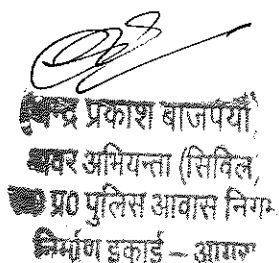 प्रकाश बाजपेयी
अवर अभियन्ता (सिविल)
उ०प्र० पुलिस आवास निगम
निर्माण इकाई – आगरा